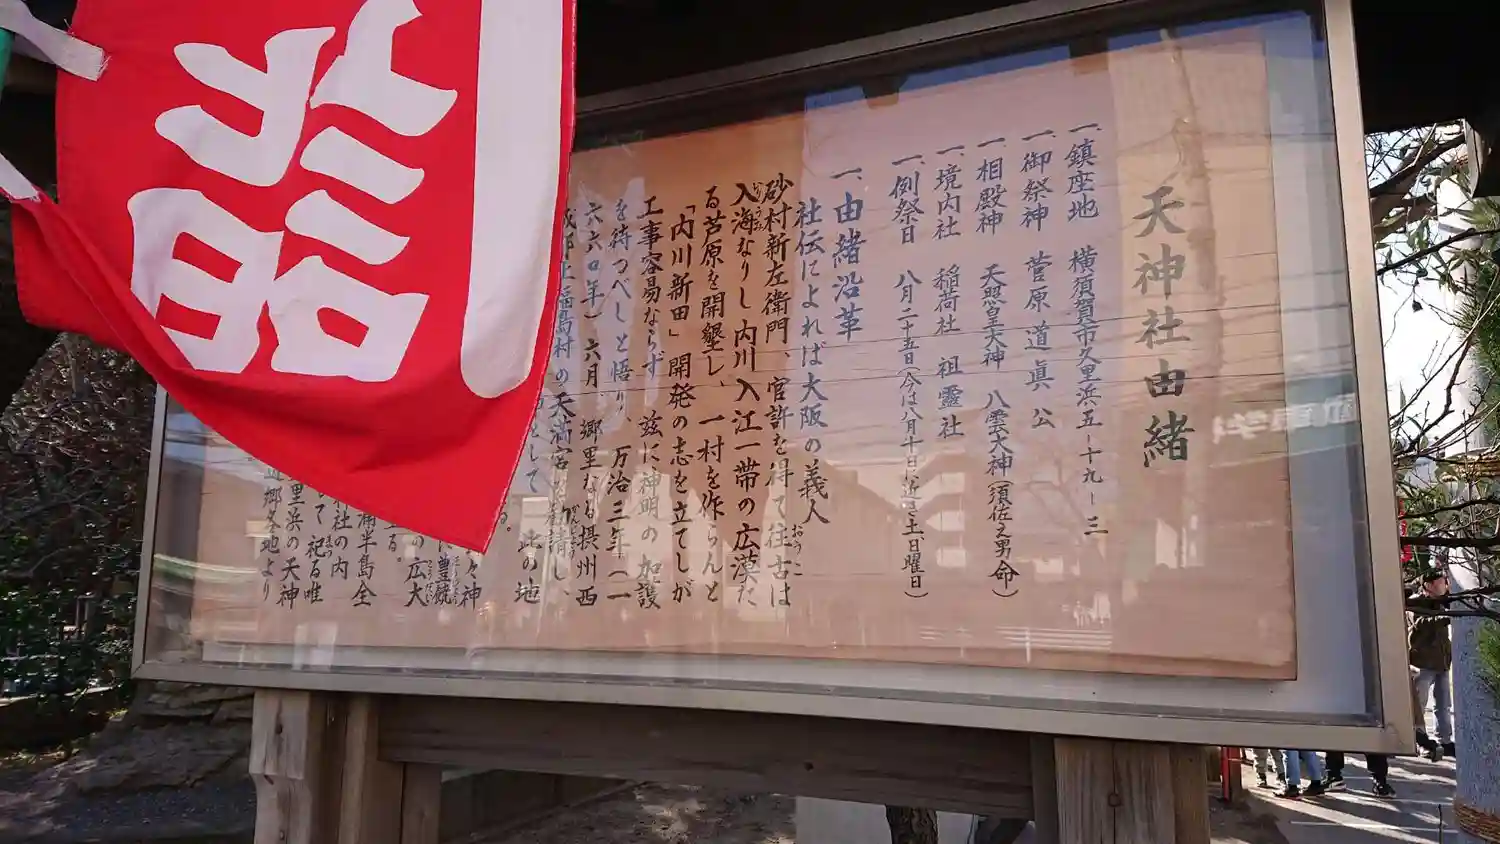 天神社由緒
一、鎮座地 横須賀市久里浜五ー十九ー三
一、御祭神 菅原道眞公
一、相殿神 天照皇大神 八雲大神(須佐之男命)
一、境内社 稲荷社 祖霊社
一、例祭日 八月二十五日(今は八月十日に近き土日曜日)
一、由緒沿革
社伝によれば大阪の義人
砂村新左衛門、官許を得て往古は
入海なりし内川入江一帯の広漠た
る芦原を開墾し、一村を作らんと
「内川新田」開発の志を立てしが
工事容易ならず 茲に神明の加護
を待つべしと悟り、万治三年(一
六六〇年)六月、郷里なる摂州西
成郡上福島村の天満宮
として 此の地
る。
々神
に豊饒
の広大
る。
浦半島全
社の内
して祀る唯
里浜の天神
近郷各地より
詣